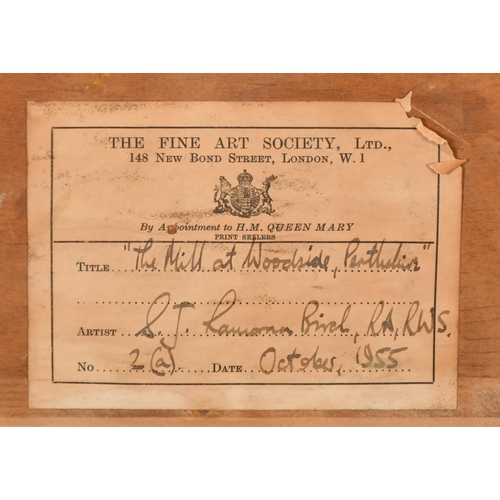 THE FINE ART SOCIETY, LTD.,
148 NEW BOND STREET, LONDON, W. 1
By Appointment to H.M. QUEEN MARY
PRINT SELLERS
TITLE "The Mill at Woodside, Perthshire"
ARTIST S. J. Lamorna Birch, RA, RWS.
NO 2(a) DATE October, 1955